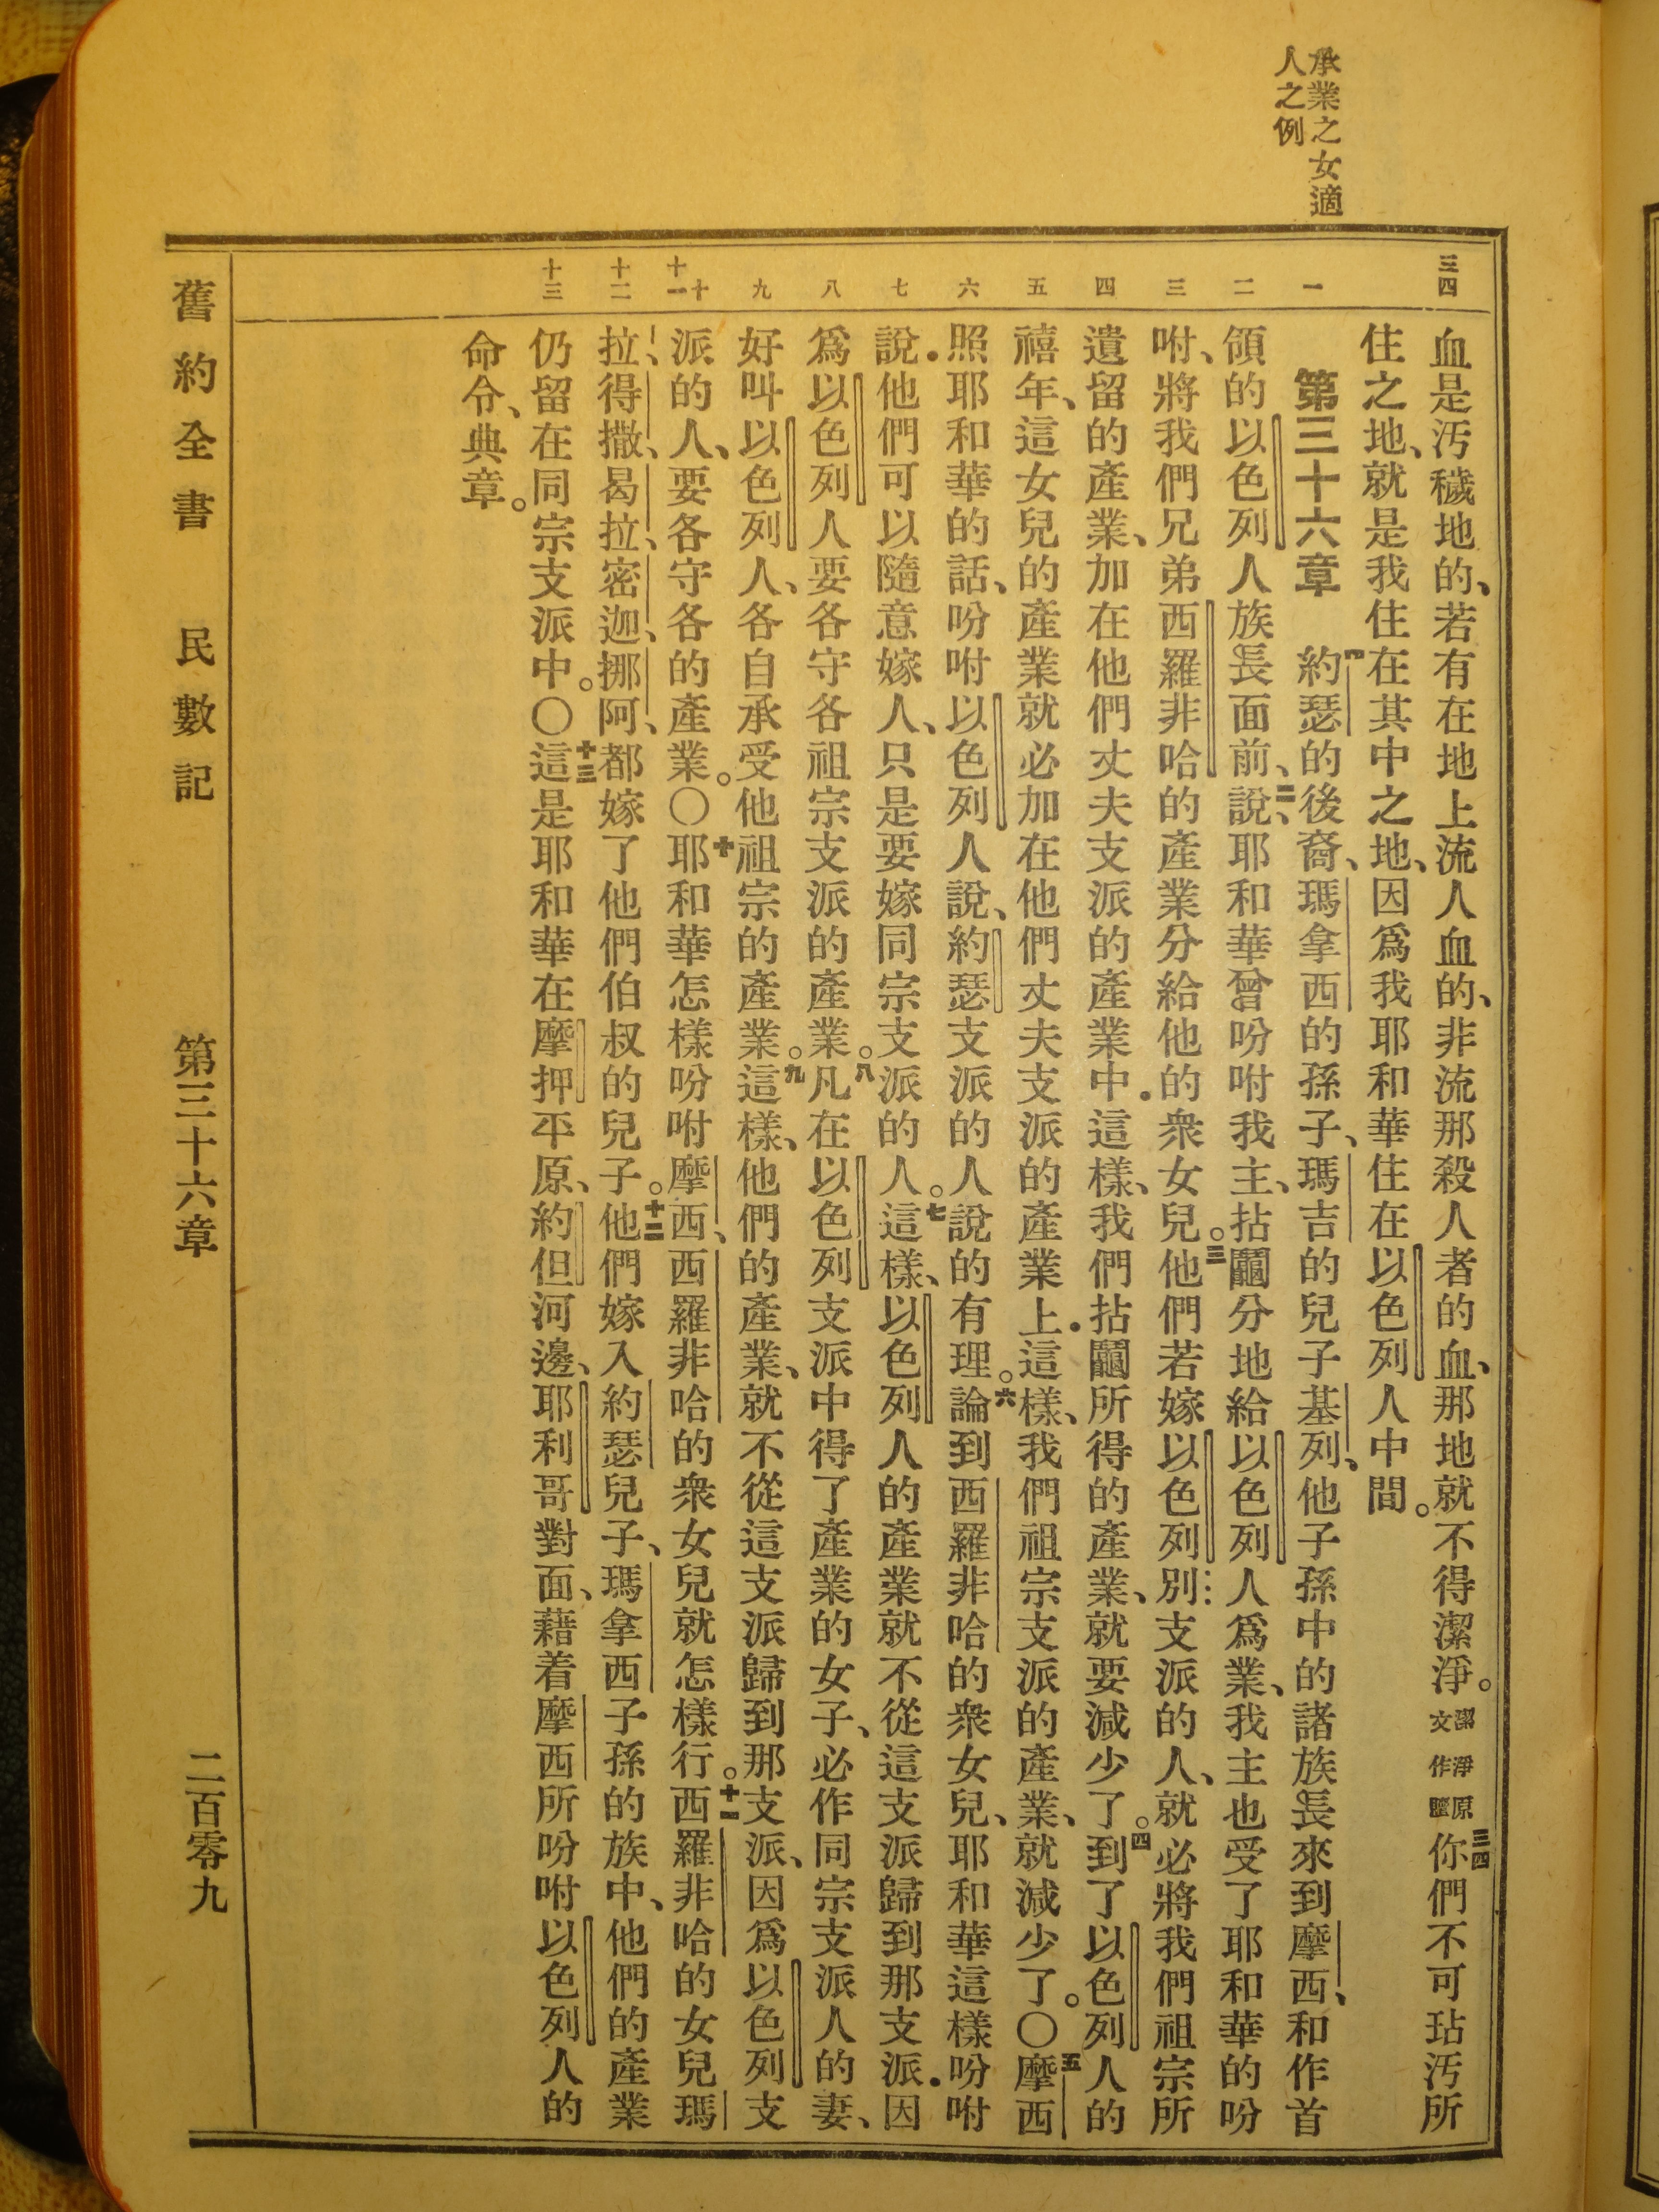 承業之女適
人之例
三四
一
二
三
四
五
六
七
八
九
十
十一
十二
十三
血是汚穢地的、若有在地上流人血的、非流那殺人者的血、那地就不得潔淨。潔淨原文作贖三四你們不可玷汚所
住之地、就是我住在其中之地、因爲我耶和華住在以色列人中間。
第三十六章 一約瑟的後裔、瑪拿西的孫子、瑪吉的兒子基列、他子孫中的諸族長來到摩西、和作首
領的以色列人族長面前、說、二耶和華曾吩咐我主、拈鬮分地給以色列人爲業、我主也受了耶和華的吩
咐、將我們兄弟西羅非哈的產業分給他的衆女兒。三他們若嫁以色列別支派的人、就必將我們祖宗所
遺留的產業、加在他們丈夫支派的產業中．這樣、我們拈鬮所得的產業、就要減少了。四到了以色列人的
禧年、這女兒的產業就必加在他們丈夫支派的產業上．這樣、我們祖宗支派的產業、就減少了。〇五摩西
照耶和華的話、吩咐以色列人說、約瑟支派的人說的有理。六論到西羅非哈的衆女兒、耶和華這樣吩咐
說．他們可以隨意嫁人、只是要嫁同宗支派的人。七這樣、以色列人的產業就不從這支派歸到那支派．因
爲以色列人要各守各祖宗支派的產業。八凡在以色列支派中得了產業的女子、必作同宗支派人的妻、
好叫以色列人、各自承受他祖宗的產業。九這樣、他們的產業、就不從這支派歸到那支派、因爲以色列支
派的人、要各守各的產業。〇十耶和華怎樣吩咐摩西、西羅非哈的衆女兒就怎樣行。十一西羅非哈的女兒瑪
拉、得撒、曷拉、密迦、挪阿、都嫁了他們伯叔的兒子。十二他們嫁入約瑟兒子、瑪拿西子孫的族中、他們的產業
仍留在同宗支派中。〇十三這是耶和華在摩押平原、約但河邊、耶利哥對面、藉着摩西所吩咐以色列人的
命令、典章。
舊約全書 民數記 第三十六章 二百零九